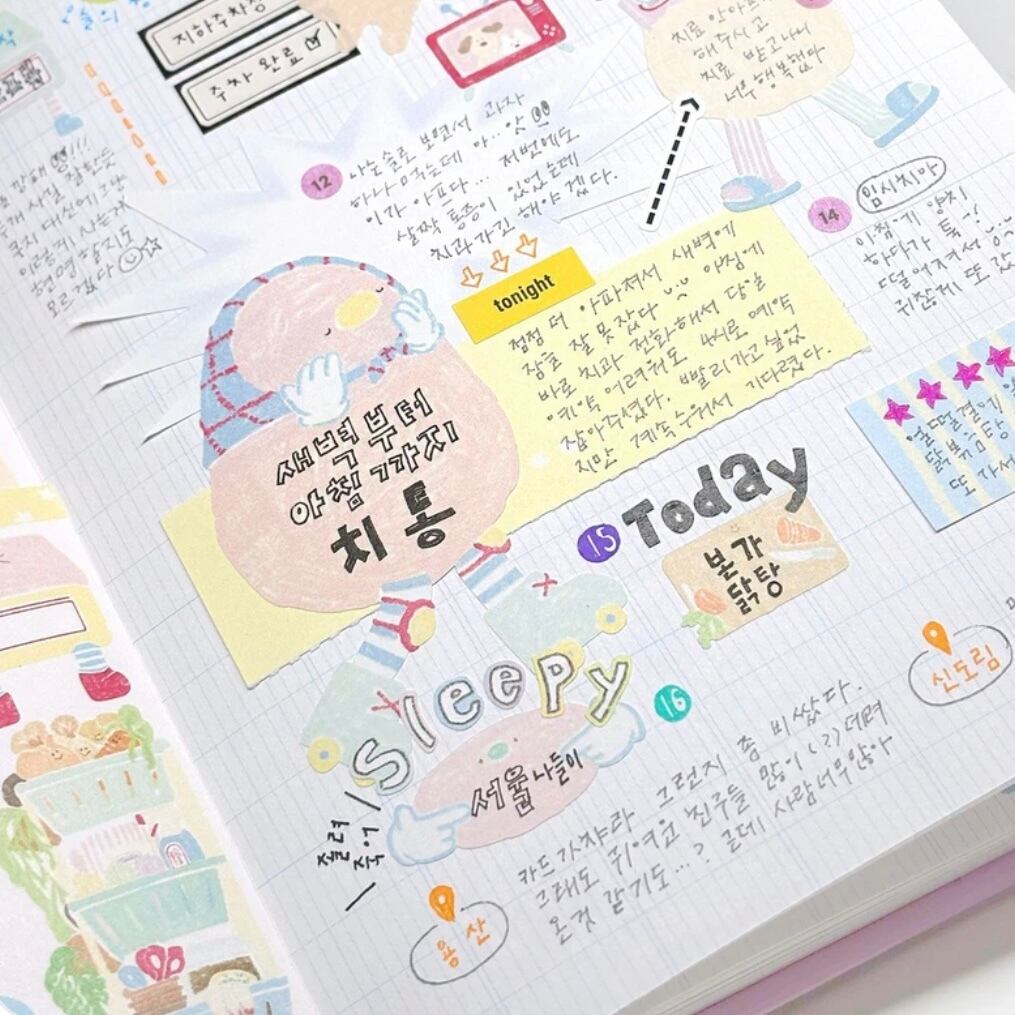 지하주차장
주차 완료
치료 안아프
해주시고
치료 받고나니
너무 행복했다
12
나는솔로 보면서 과자
하나 먹는데 아.. 앗
이가 아프다... 저번에도
살짝 통증이 있었는데
치과가긴 해야 겠다.
tonight
점점 더 아파져서 새벽에
잠을 잘 못 잤다 아침에
바로 치과 전화해서 당일
예약 어려워도 4시로 예약
잡아주셨다. 빨리 가고 싶었
지만 계속 누워서 기다렸다.
14
임시치아
아침에 양치
하다가 톡-!
떨어져서
귀찮게 또 갔
얼떨결에
닭볶음탕
또 가서
새벽부터
아침까지
치통
15
Today
본가
닭탕
Sleepy
16
서울나들이
졸려
죽어
신도림
카드 가챠라 그런지 좀 비쌌다.
그래도 귀여운 친구들 많이 (?) 데려
온것 같기도...? 근데 사람너무많아
용산
잘한듯
사실
먹지 대신에 그냥
이렇게 사는게
현명할지도
모르겠다